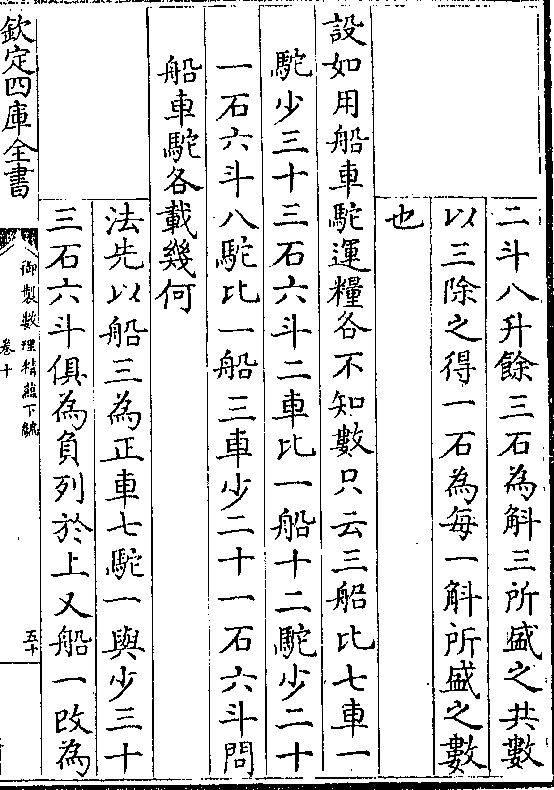 二斗八升餘三石為斛三所盛之共數
以三除之得一石為每一斛所盛之數
也
設如用船車駝運糧各不知數只云三船比七車一
駝少三十三石六斗二車比一船十二駝少二十
一石六斗八駝比一船三車少二十一石六斗問
船車駝各載幾何
法先以船三為正車七駝一與少三十
三石六斗俱為負列於上又船一改為
欽定四庫全書
御製數理精蘊下編
卷十
五十